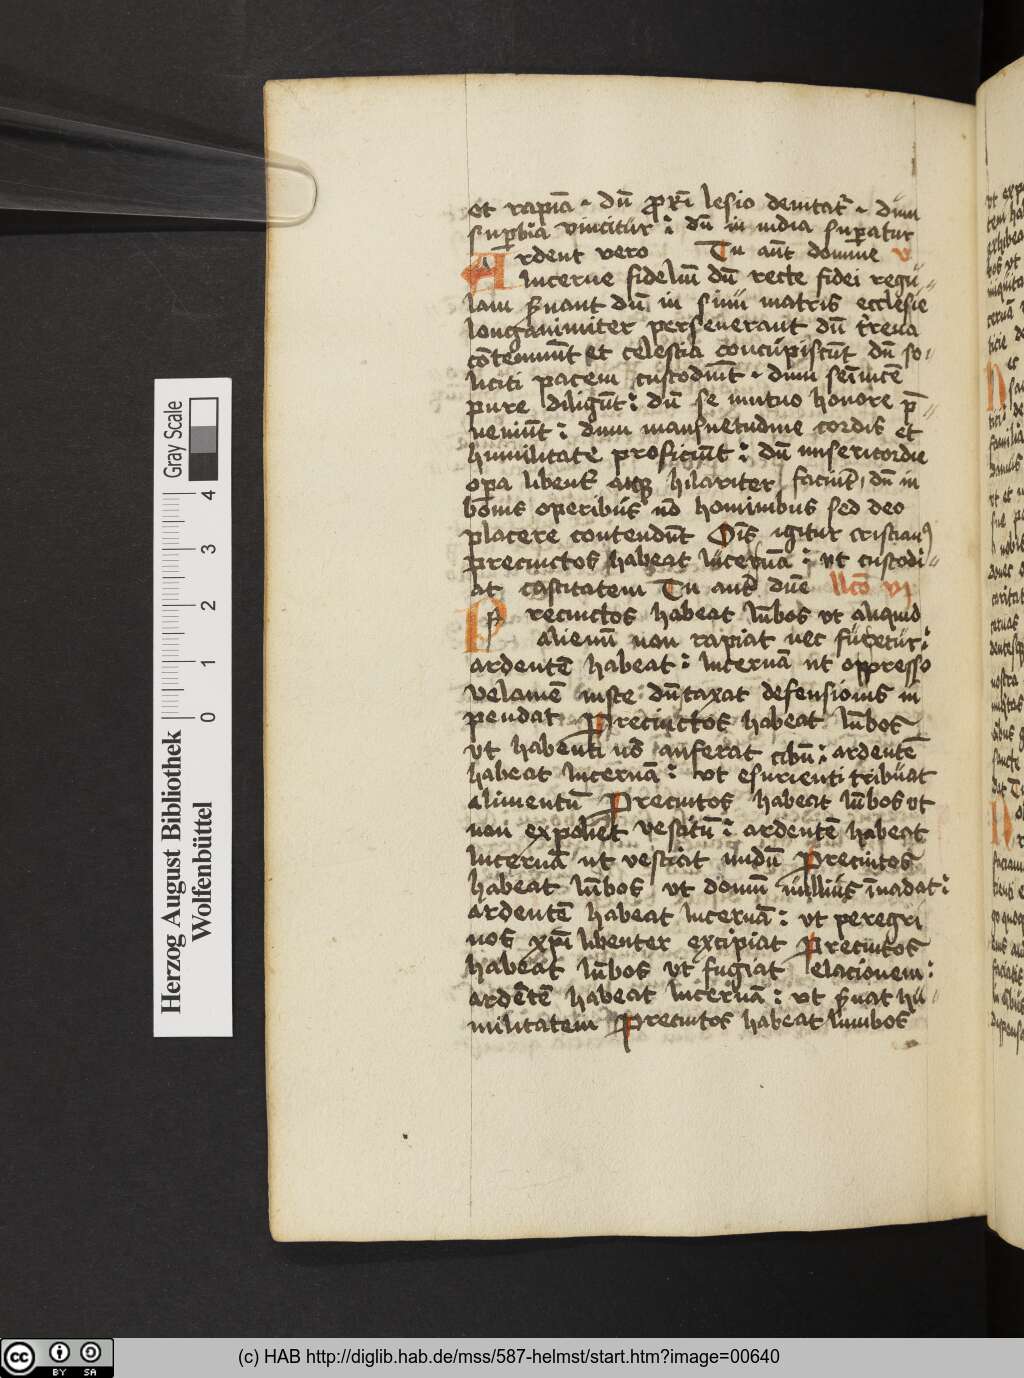 et rapīa · dū ꝓxī lesio deuitat᷑ · dum
suꝑbia vincitur : dū in uidia suꝑatur
Ardent vero Tu aūt domine v
lucerne fideliū dū recte fidei regu
lam ẜuant dū in sinu matris ecclesie
longanimiter perseuerant dū t̄rena
cōtemnūt et celestia concupiscūt dū so
liciti pacem custodiūt · dum seīuicē
pure diligūt : dū se mutuo honore p̄
ueniūt : dum mansuetudine cordis et
humilitate proficiūt : dū misericordie
oꝑa libent᷑ atqꝫ hilariter faciūt, dū in
bonis operibus nō hominibus sed deo
placere contendūt Oīs igitur cristianꝰ
precinctos habeat lucernā : ut custodi
at castitatem Tu aut᷑ dūe llcō vj
Precinctos habeat lūbos vt aliquid
alienū non rapiat nec furetur :
ardentē habeat : lucernā ut oppresso
velamē iuste dūtaxat defensionis in
pendat Precinctos habeat lūbos
vt habenti nō auferat cibū : ardentē
habeat lucernā : vt esurienti tribuat
alimentū Precintos habeat lūbos vt
non expoliet vestitū : ardentē habeat
lucernā ut vestiat nudū Precintos
habeat lūbos vt domū nullius īuadat :
ardentē habeat lucernā : vt peregri
nos xp̄i libenter excipiat Precintos
habeat lūbos vt fugiat elacionem :
ardētē habeat lucernā : vt ẜuat hu
militatem Precintos habeat lumbos
Herzog August Bibliothek
Wolfenbüttel
0 1 2 3 4
Gray Scale
cc BY SA
(c) HAB http://diglib.hab.de/mss/587-helmst/start.htm?image=00640